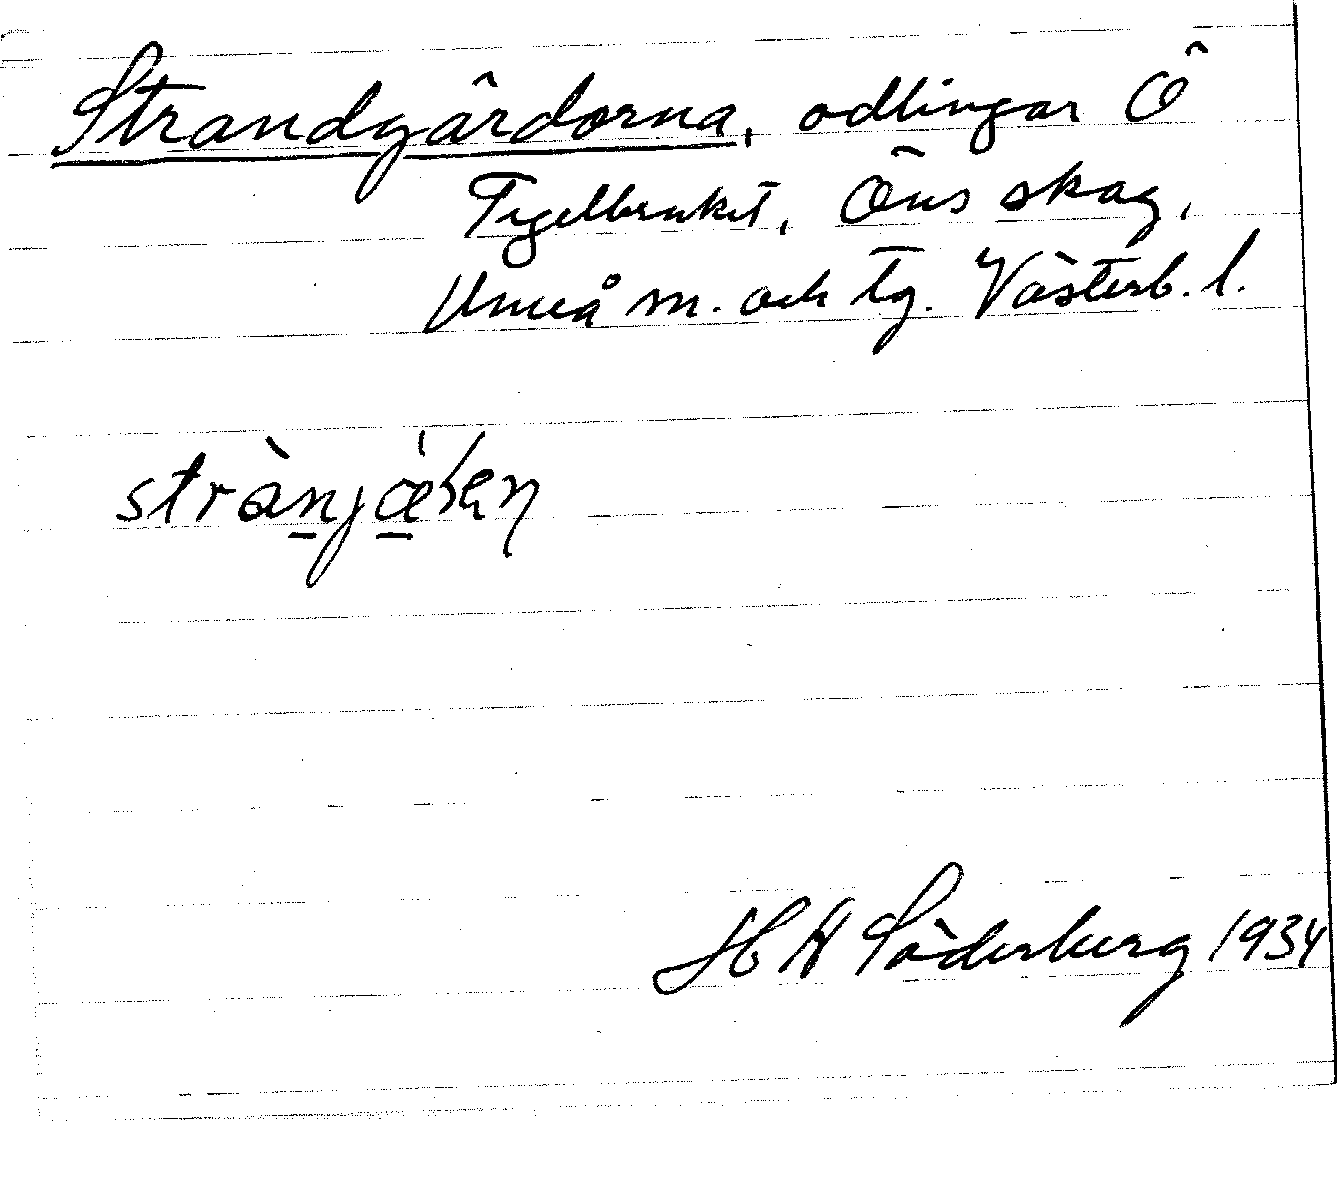 Strandgärdorna, odlingar Ö
Tegelbruket, Öns skog,
Umeå m. och tg. Västerb. l.
H H Söderberg 1934